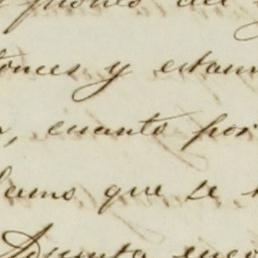 del
onces y estam
, cuanto por
bamos que se
Apunta